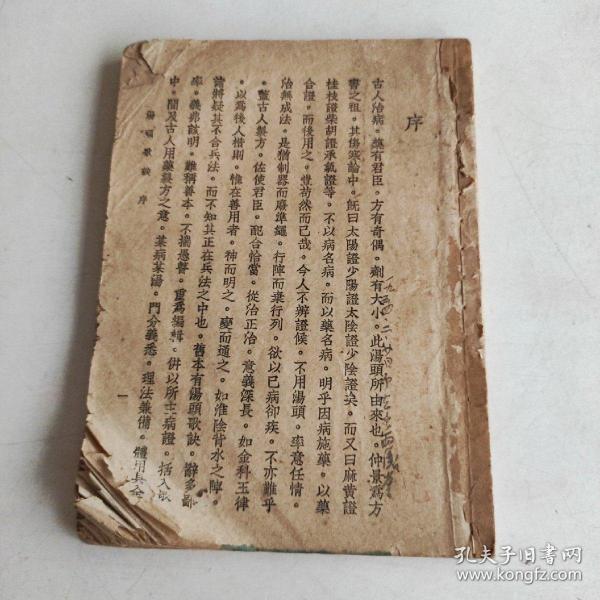 序
古人治病。藥有君臣。方有奇偶。劑有大小。此湯頭所由來也。仲景爲方
書之祖。其傷寒論中。旣曰太陽證少陽證太陰證少陰證矣。而又曰麻黃證
桂枝證柴胡證承氣證等。不以病名病。而以藥名病。明乎因病施藥。以藥
合證。而後用之。豈苟然而已哉。今人不辨證候。不用湯頭。率意任情。
治無成法。是猶制器而廢準繩。行陣而棄行列。欲以已病卻疾。不亦難乎
。蓋古人製方。佐使君臣。配合恰當。從治正治。意義深長。如金科玉律
。以爲後人楷則。惟在善用者。神而明之。變而通之。如淮陰背水之陣。
諸將疑其不合兵法。而不知其正在兵法之中也。舊本有湯頭歌訣。辭多鄙
率。義弗該明。難稱善本。不揣愚瞽。重爲編輯。併以所主病證。括入歌
中。間及古人用藥製方之意。某病某湯。門分義悉。理法兼備。體用具全
湯頭歌訣 序
一
孔夫子旧书网
www.kongfz.com